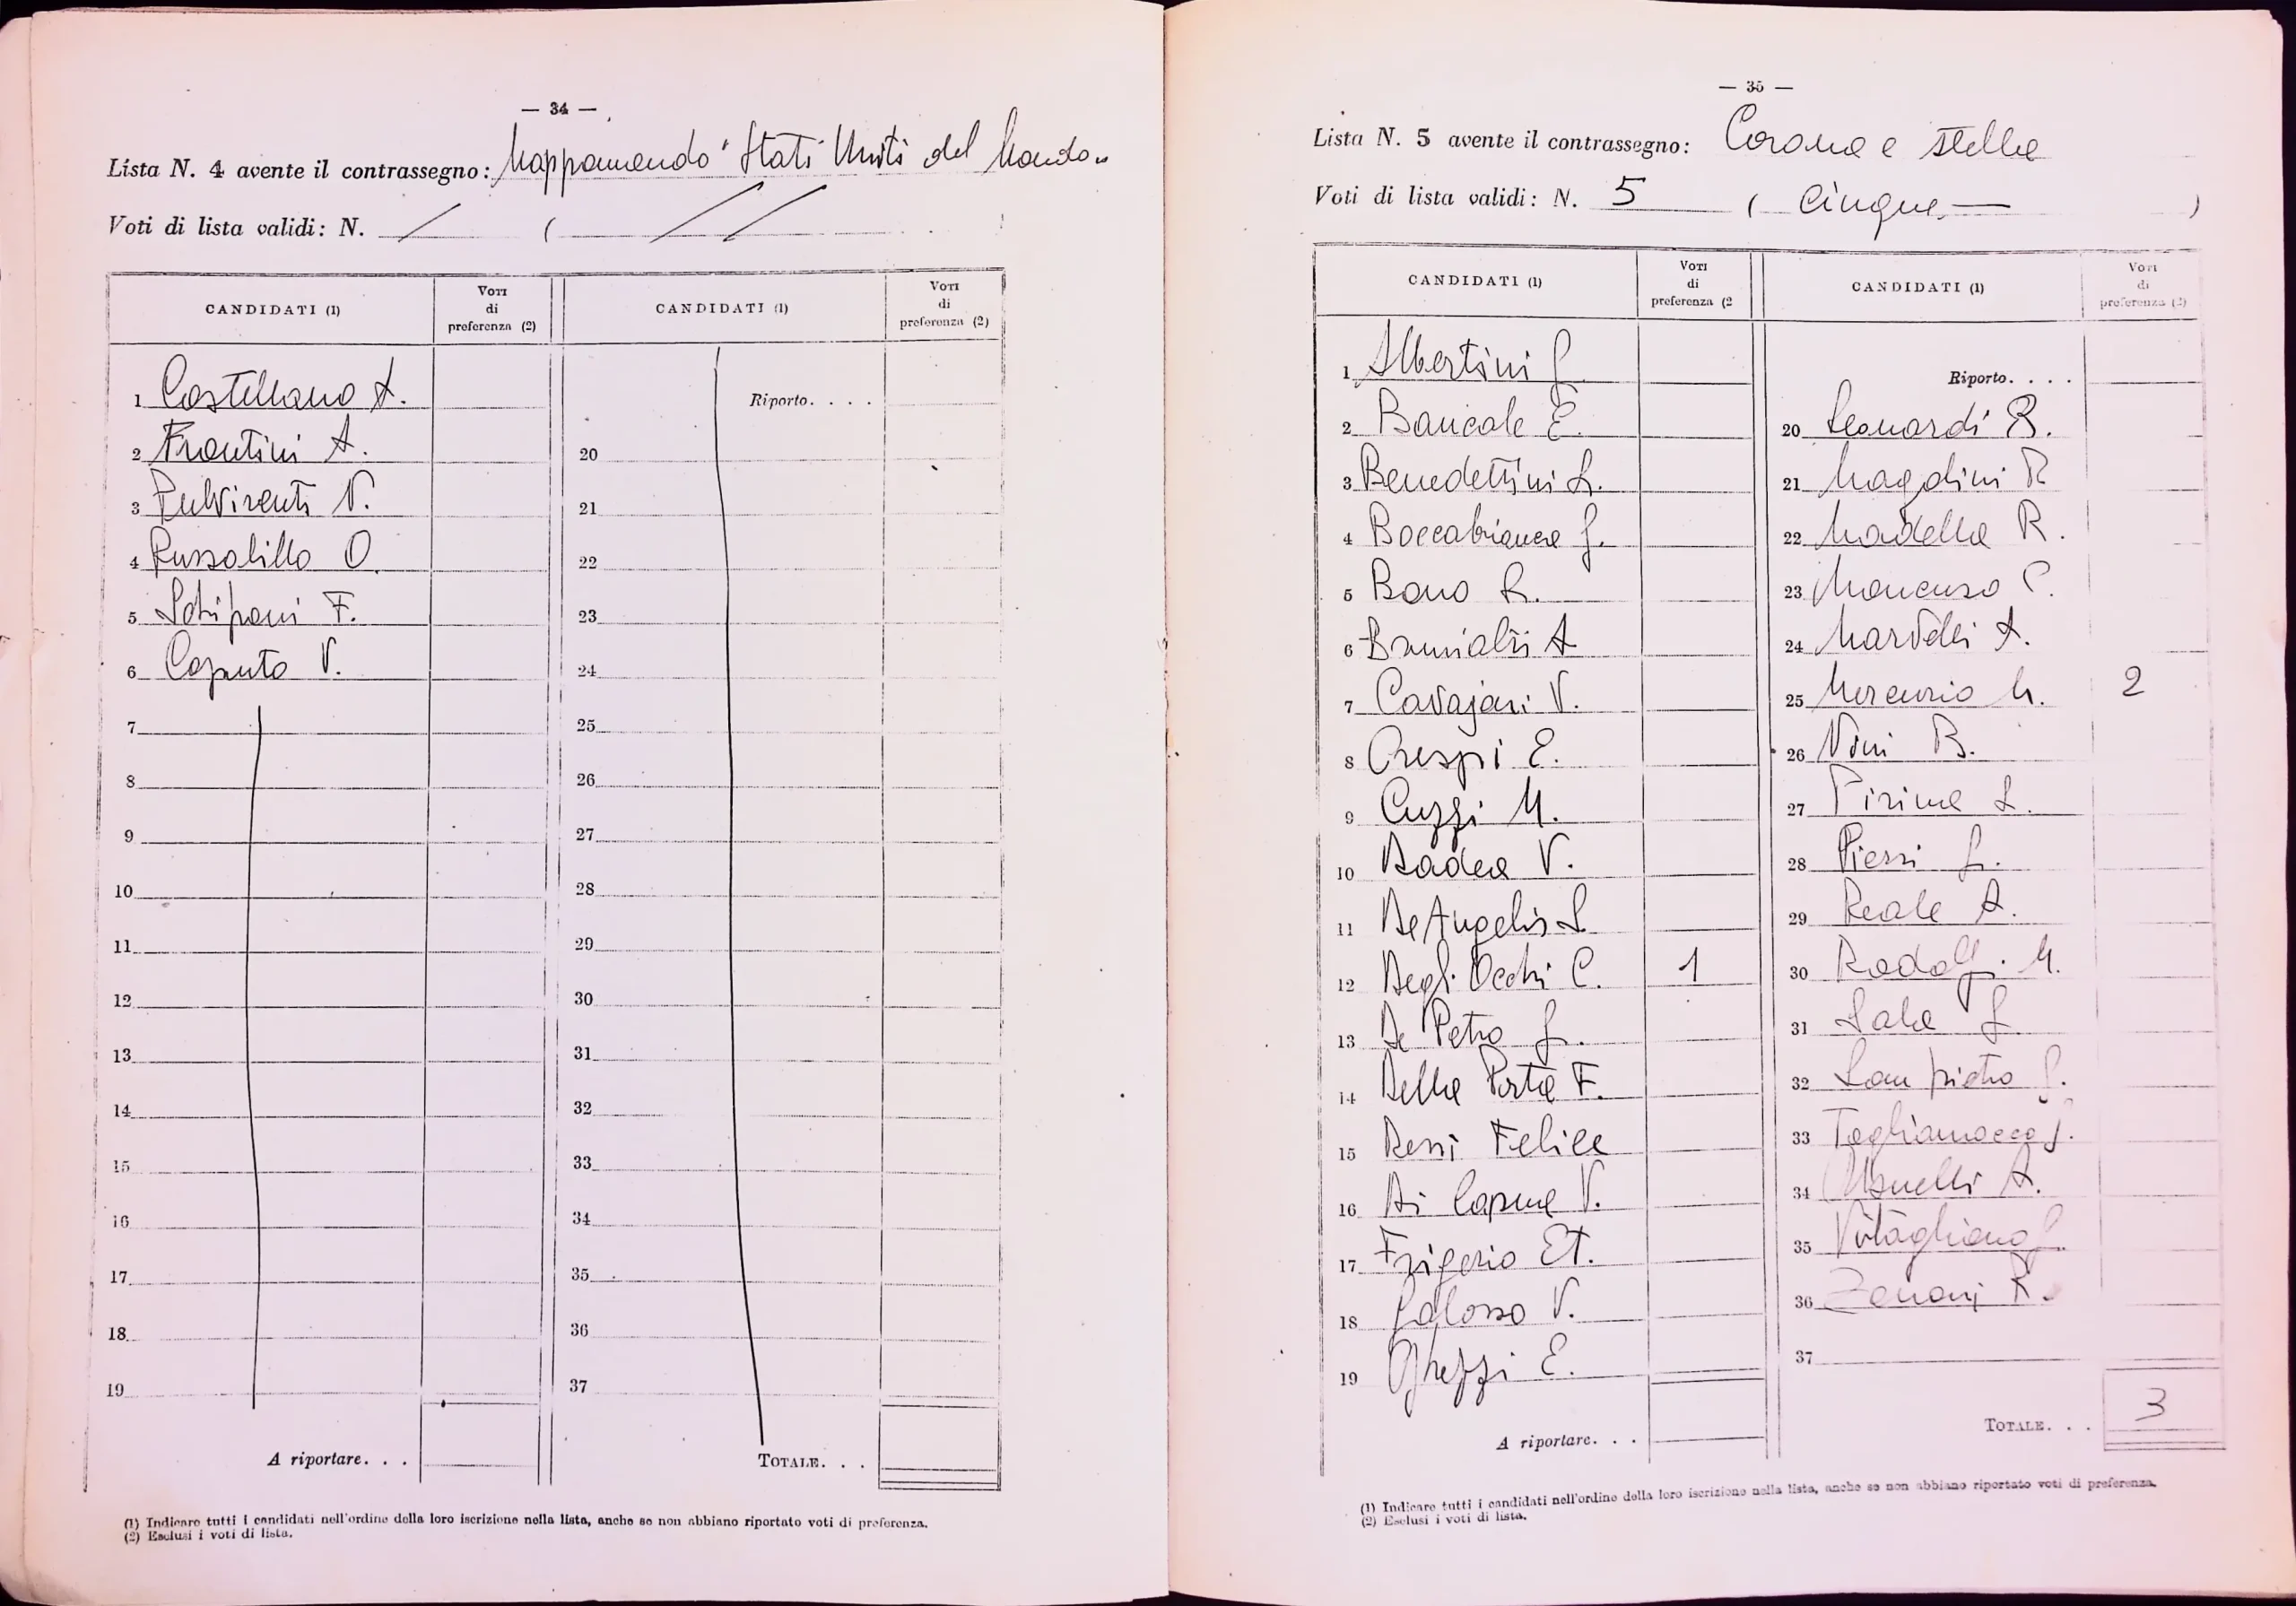 — 34 —
Lista N. 4 avente il contrassegno: Mappamondo "Stati Uniti del Mondo"
Voti di lista validi: N. / ( //
CANDIDATI (1) Voti di preferenza (2) CANDIDATI (1) Voti di preferenza (2)
1 Castellano A.
2 Frontini A.
3 Pulvirenti V.
4 Russolillo O.
5 Schipani F.
6 Caputo V.
7
8
9
10
11
12
13
14
15
16
17
18
19
A riportare. . .
Riporto. . . .
20
21
22
23
24
25
26
27
28
29
30
31
32
33
34
35
36
37
TOTALE. . .
(1) Indicare tutti i candidati nell'ordine della loro iscrizione nella lista, anche se non abbiano riportato voti di preferenza.
(2) Esclusi i voti di lista.
— 35 —
Lista N. 5 avente il contrassegno: Corona e stelle
Voti di lista validi: N. 5 ( cinque — )
CANDIDATI (1) Voti di preferenza (2 CANDIDATI (1) Voti di preferenza (2)
1 Albertini G.
2 Baucale E.
3 Benedettini L.
4 Boccabianca G.
5 Bono L.
6 Brunialti A
7 Cavajani V.
8 Crespi E.
9 Cuzzi M.
10 Dadea V.
11 De Angelis L.
12 Degli Occhi C. 1
13 De Petro G.
14 Della Porta F.
15 Dessi Felice
16 Di Capua V.
17 Frigerio Et.
18 Galosso V.
19 Ghezzi E.
A riportare. . .
Riporto. . . .
20 Leonardi B.
21 Magdini R
22 Mardella R.
23 Mancuso C.
24 Martelli A.
25 Mercurio M. 2
26 Nini B.
27 Pirina L.
28 Pierri G.
29 Reale A.
30 Radolfi M.
31 Sala G.
32 Sanpietro G.
33 Tagliamacco G.
34 Usuelli A.
35 Vitagliano G.
36 Zanoni R.
37
TOTALE. . . 3
(1) Indicare tutti i candidati nell'ordine della loro iscrizione nella lista, anche se non abbiano riportato voti di preferenza.
(2) Esclusi i voti di lista.